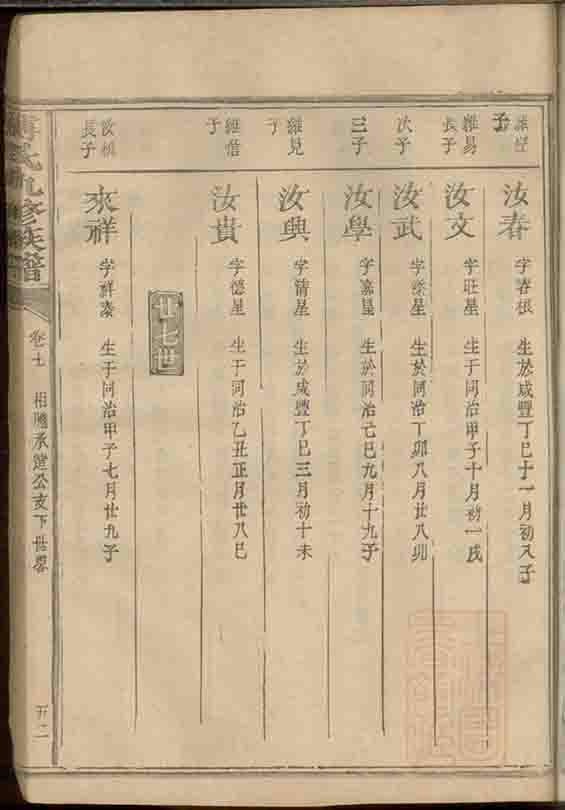 子
汝春 字春根 生於咸豐丁巳十一月初又子
維易長子
汝文 字旺星 生于同治甲子十月初一戌
次子
汝武 生於同治丁卯八月廿八卯
三子
汝學 字嘉星 生於同治己巳九月十九子
維見子
汝興 字清星 生於咸豐丁巳三月初十未
維信子
汝貴 字德星 生于同治乙丑正月廿八巳
廿七世
汝楨長子
來祥 字祥泰 生于同治甲子七月廿九子
氏九修族譜
卷七
承達公支下世畧
五二